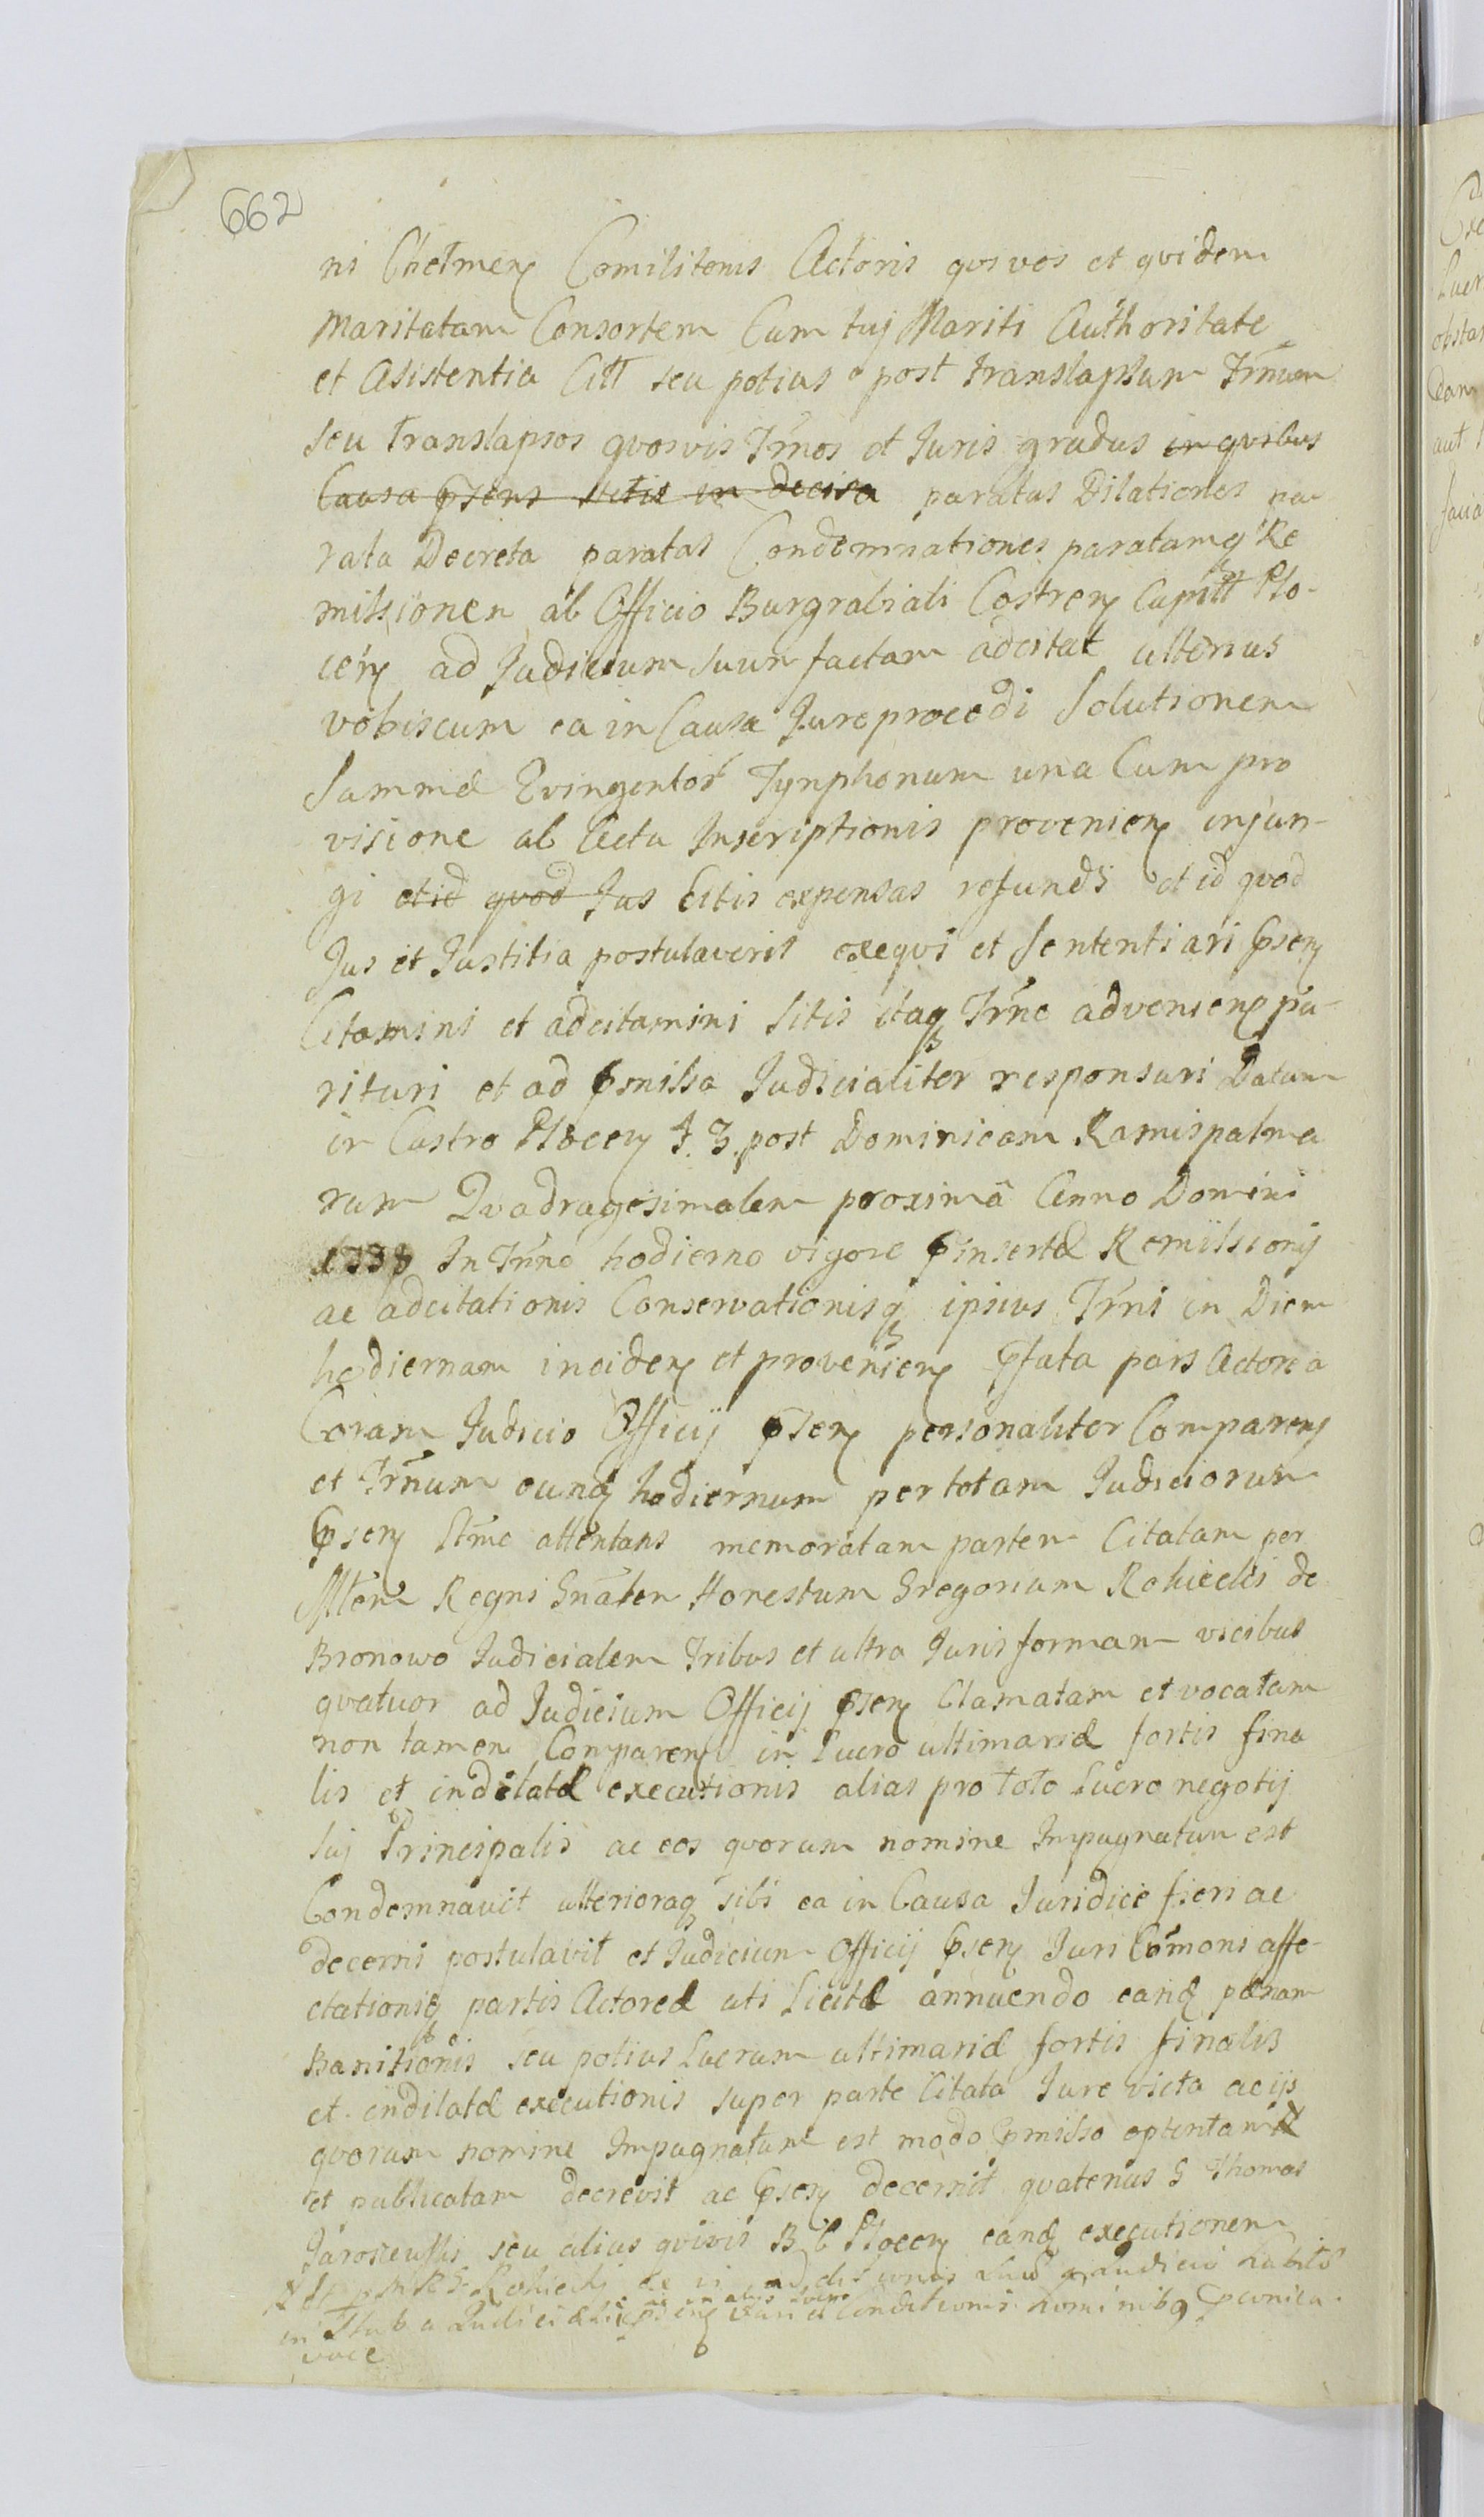 662
ni Chełmen Comilitonis Actoris qvos vos et qvidem
Maritatam Consortem Cum tuj Mariti Authoritate
et Asistentia Citt seu potius post translapsum Trnum
seu translapsos qvosvis Trnos et Juris gradus in qvibus
Causa psens stetit in decisa paratas Dilationes pa
rata Decreta paratas Condemnationes paratamq Re
missionem ab Officio Burgrabiali Castren Capitt Plo-
cen ad Judicium suum factam adcitat ulterius
vobiscum ea in Causa Jure procedi Solutionem
Summæ Tynphonum una Cum pro
visione ab Actu Inscriptionis provenien injun-
gi et id quod Jus Litis expensas refundi et id quod
Jus et Justitia postulaverit exeqvi et Sententiari psen
Citamini et adcitamini Sitis itaq Trno advenien pa-
rituri et ad pmissa Judicialiter responsuri Datum
in Castro Plocen F. 3. post Dominicam Ramispalma
rum Qvadragesimalem proxima Anno Domini
1738 In Trno hodierno vigore pinsertæ Remissionis
ac adcitationis Conservationisq ipsius Trni in Diem
hodiernam inciden et provenien pfata pars Actorea
Coram Judicio Officij psen personaliter Comparens
et Trnum eund hodiernum per totam Judiciorum
psen attentans memoratam partem Citatam per
Mlem Regni Gnalem Honestum Gregorium Rokicki de
Bronowo Judicialem Tribus et ultra Juris formam vicibus
qvatuor ad Judicium Officij psen Clamatam et vocatam
non tamen Comparen in Lucro ultimariæ fortis fina
lis et indilatæ executionis alias pro toto Lucro negotij
sui Principalis ac eos qvorum nomine Impugnatum est
Condemnavit ulterioraq sibi ea in Causa Juridice fieri ac
decerni postulavit et Judicium Officij psen Juri Comoni affe-
ctationiq partis Actoreæ uti Licitæ annuendo eand pænam
Banitionis seu potius Lucrum ultimariæ fortis finalis
et indilatæ executionis super parte Citata Jure victa ac ijs
qvorum nomine Impugnatum est modo pmisso optentam
et publicatam decrevit ac psen decernit qvatenus G Thomas
seu alius qvivis B C Plocen eand executionem
Rokicki
in nominibq
voce